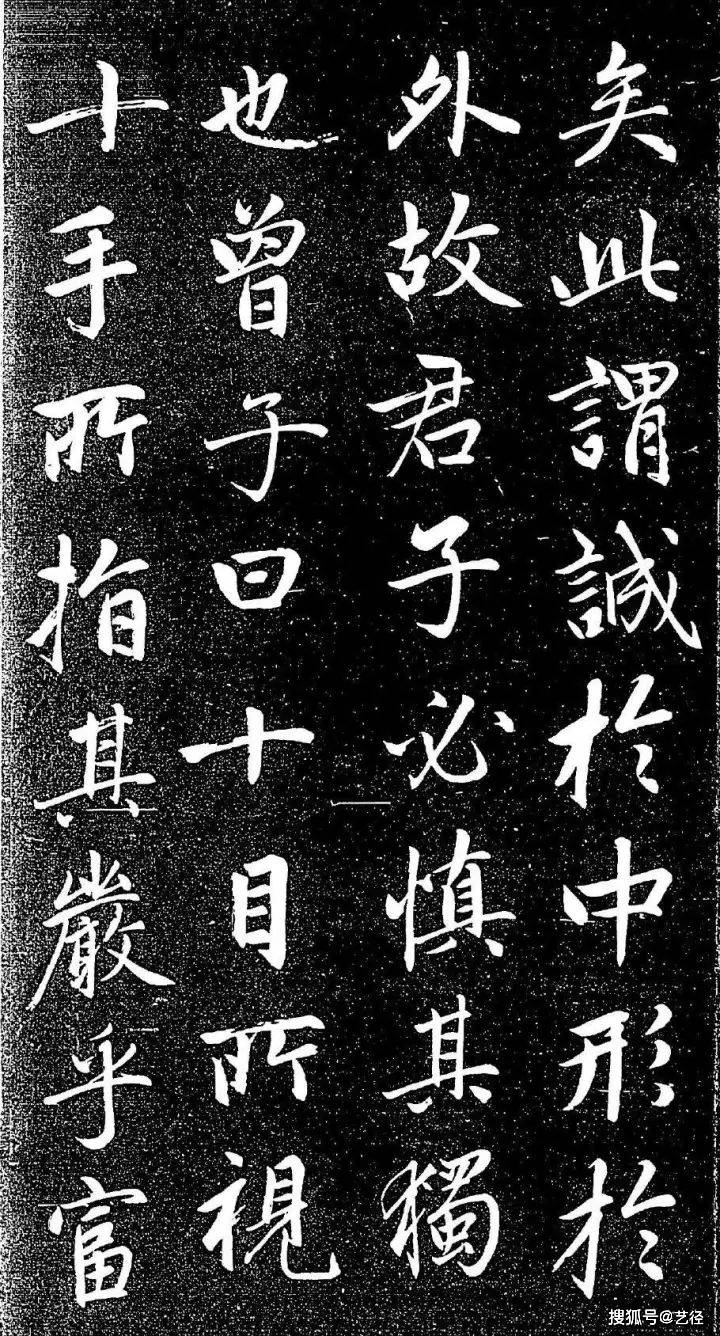 矣此謂誠於中形於
外故君子必慎其獨
也曾子曰十目所視
十手所指其嚴乎富
搜狐号@艺径